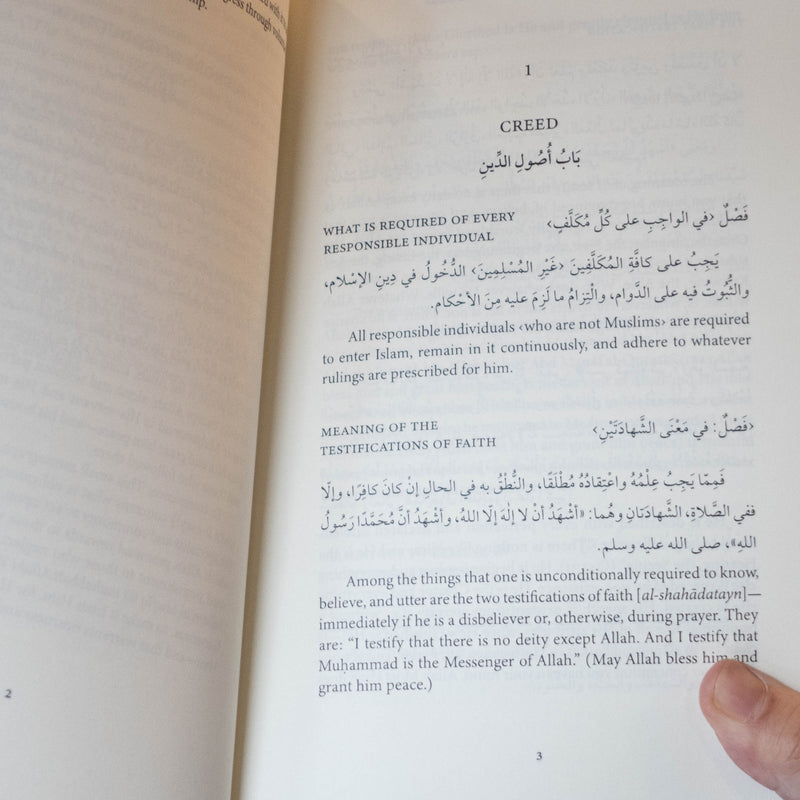 ress through
2
1
CREED
بَابُ أُصُولِ الدِّينِ
WHAT IS REQUIRED OF EVERY
RESPONSIBLE INDIVIDUAL
فَصْلٌ ‹في الواجِبِ على كُلِّ مُكَلَّفٍ›
يَجِبُ على كافَّةِ المُكَلَّفِينَ ‹غَيْرِ المُسْلِمِينَ› الدُّخُولُ في دِينِ الإسْلام،
والثُّبُوتُ فيه على الدَّوام، والْتِزامُ ما لَزِمَ عليه مِنَ الأحْكام.
All responsible individuals ‹who are not Muslims› are required
to enter Islam, remain in it continuously, and adhere to whatever
rulings are prescribed for him.
MEANING OF THE
TESTIFICATIONS OF FAITH
‹فَصْلٌ: في مَعْنَى الشَّهادَتَيْنِ›
فَمِمّا يَجِبُ عِلْمُهُ واعْتِقادُهُ مُطْلَقًا، والنُّطْقُ به في الحالِ إنْ كانَ كافِرًا، وإلّا
ففي الصَّلاةِ، الشَّهادَتانِ وهُما: «أشْهَدُ أنْ لا إلٰهَ إلّا اللهُ، وأشْهَدُ أنَّ مُحَمَّدًا رَسُولُ
اللهِ»، صلى الله عليه وسلم.
Among the things that one is unconditionally required to know,
believe, and utter are the two testifications of faith [al-shahādatayn]—
immediately if he is a disbeliever or, otherwise, during prayer. They
are: “I testify that there is no deity except Allah. And I testify that
Muḥammad is the Messenger of Allah.” (May Allah bless him and
grant him peace.)
3